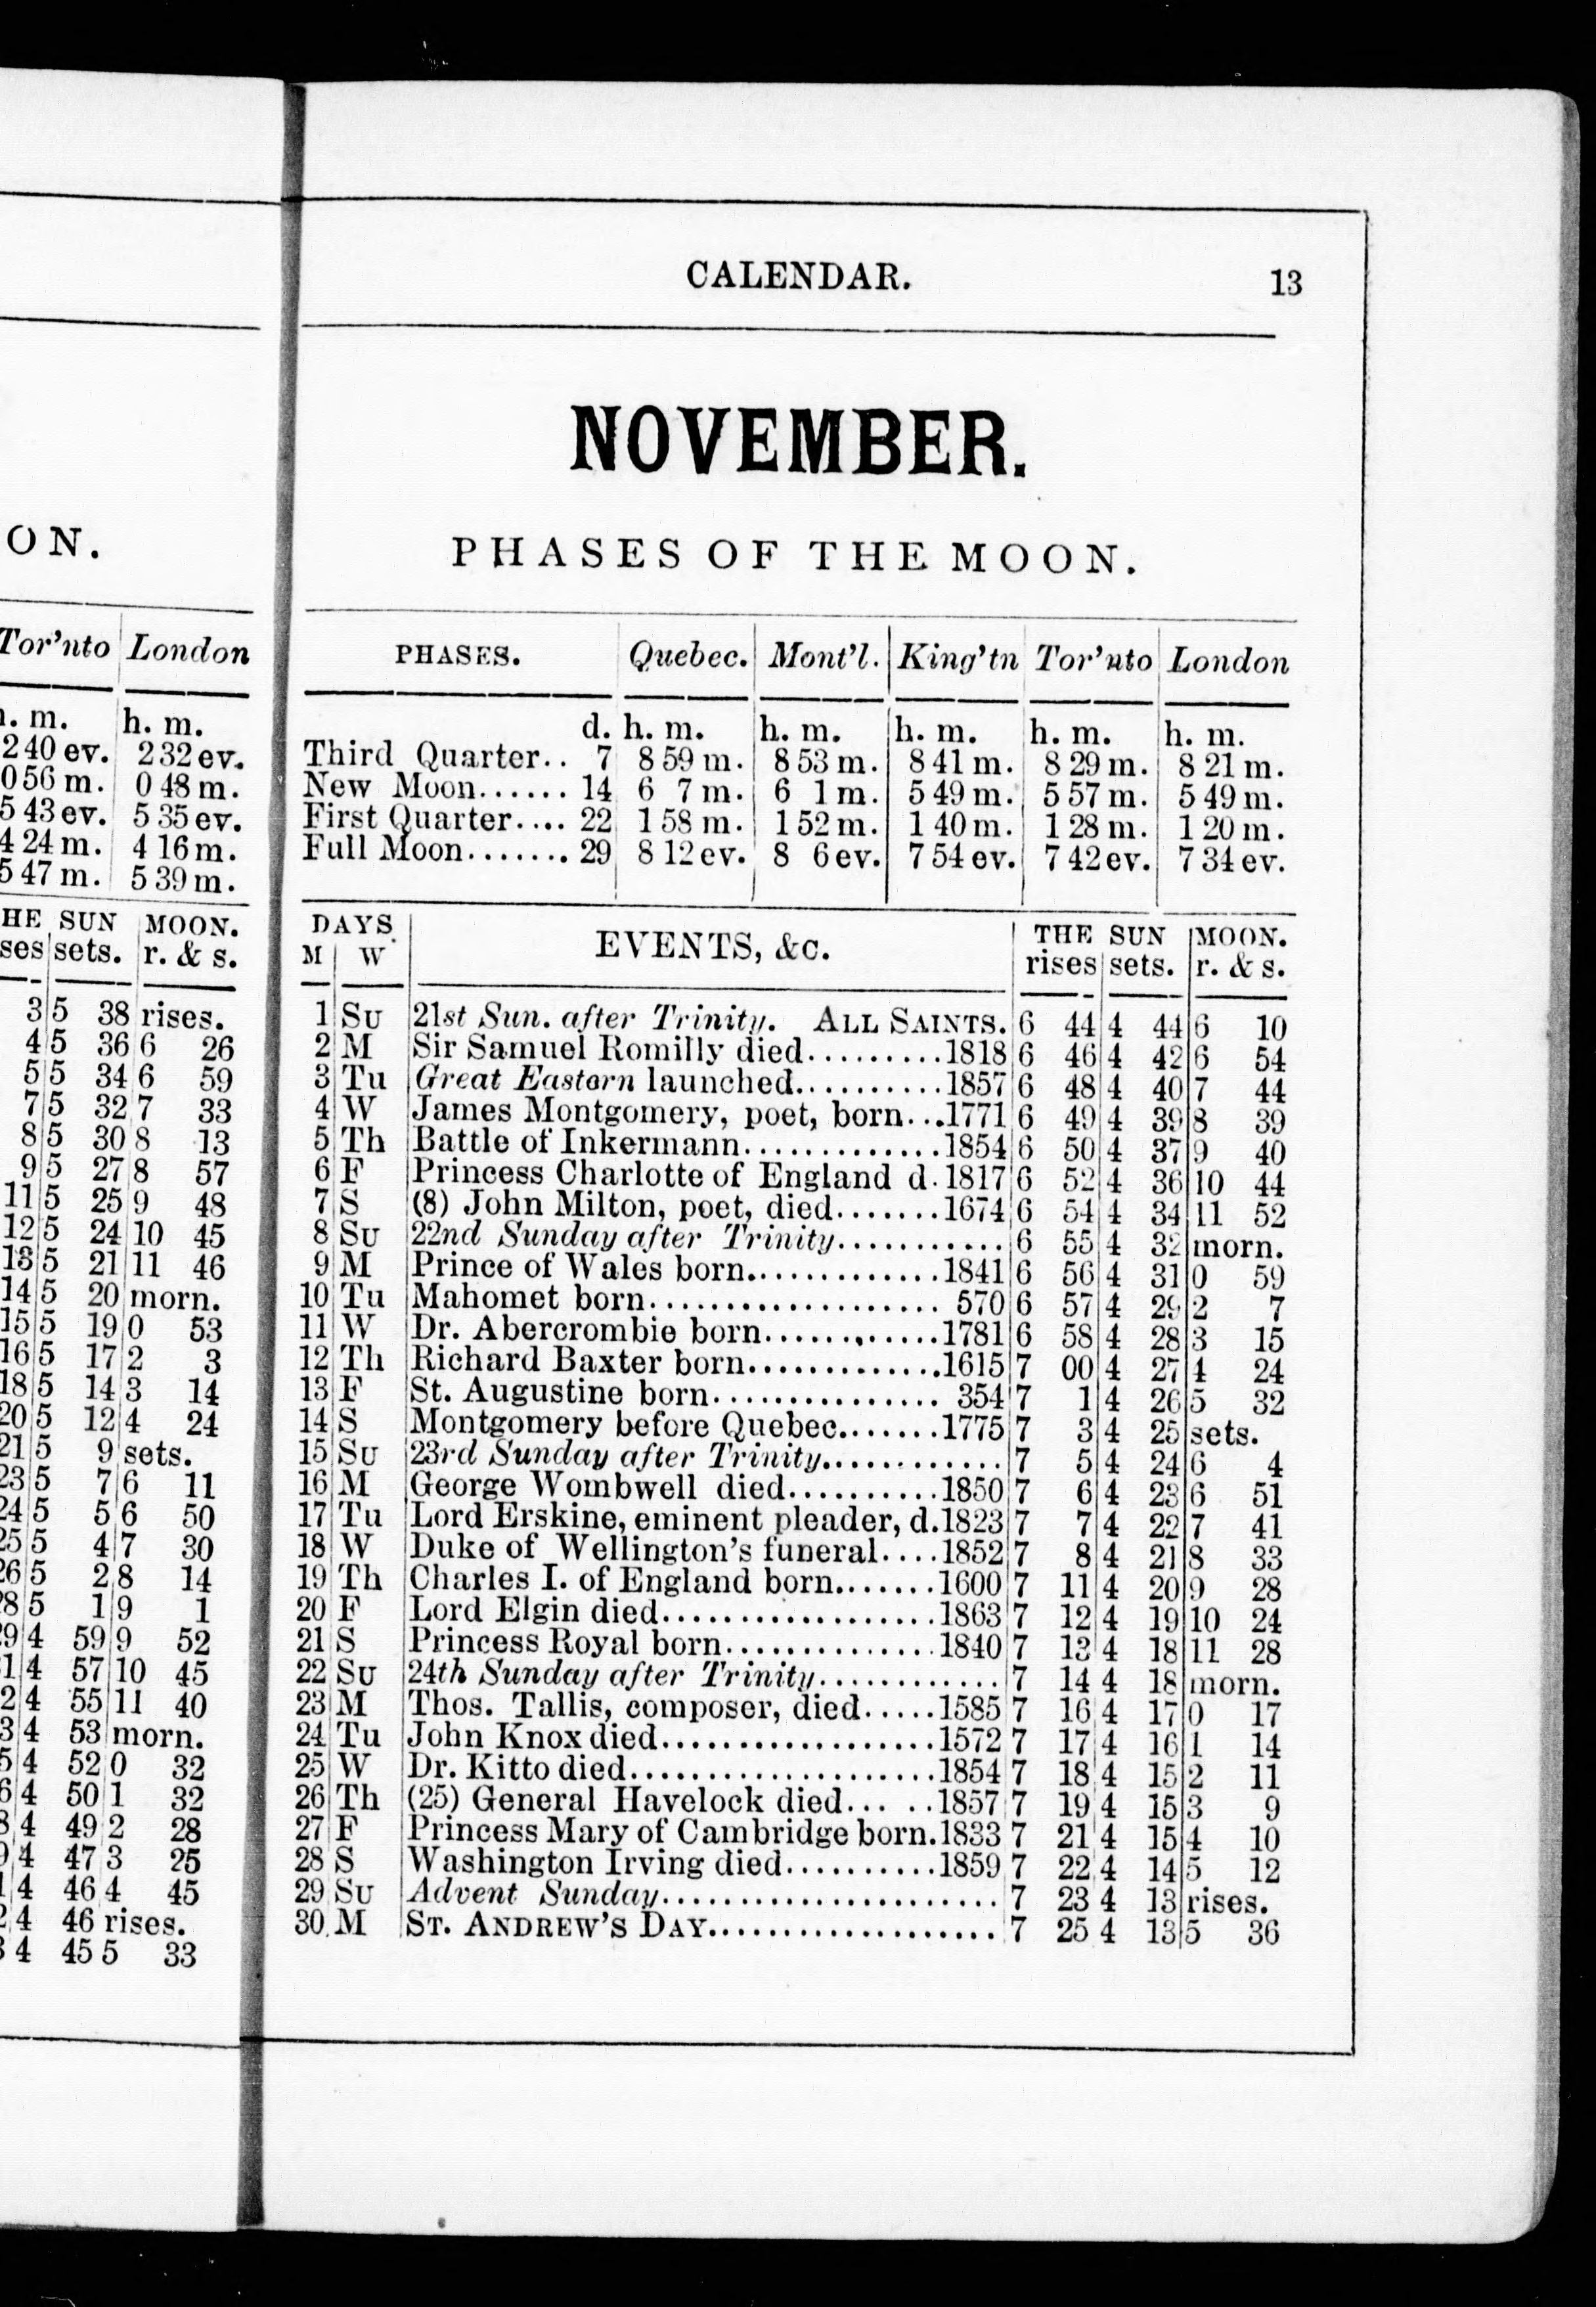 ON.
Tor'nto London
h. m. h. m.
2 40 ev. 2 32 ev.
0 56 m. 0 48 m.
5 43 ev. 5 35 ev.
4 24 m. 4 16 m.
5 47 m. 5 39 m.
HE SUN MOON.
ses sets. r. & s.
3 5 38 rises.
4 5 36 6 26
5 5 34 6 59
7 5 32 7 33
8 5 30 8 13
9 5 27 8 57
11 5 25 9 48
12 5 24 10 45
13 5 21 11 46
14 5 20 morn.
15 5 19 0 53
16 5 17 2 3
18 5 14 3 14
20 5 12 4 24
21 5 9 sets.
23 5 7 6 11
24 5 5 6 50
25 5 4 7 30
26 5 2 8 14
28 5 1 9 1
29 4 59 9 52
1 4 57 10 45
2 4 55 11 40
3 4 53 morn.
5 4 52 0 32
6 4 50 1 32
8 4 49 2 28
9 4 47 3 25
1 4 46 4 45
2 4 46 rises.
3 4 45 5 33
CALENDAR. 13
NOVEMBER.
PHASES OF THE MOON.
PHASES. Quebec. Mont'l. King'tn Tor'nto London
d. h. m. h. m. h. m. h. m. h. m.
Third Quarter.. 7 8 59 m. 8 53 m. 8 41 m. 8 29 m. 8 21 m.
New Moon...... 14 6 7 m. 6 1 m. 5 49 m. 5 57 m. 5 49 m.
First Quarter.... 22 1 58 m. 1 52 m. 1 40 m. 1 28 m. 1 20 m.
Full Moon....... 29 8 12 ev. 8 6 ev. 7 54 ev. 7 42 ev. 7 34 ev.
DAYS EVENTS, &c. THE SUN MOON.
M W rises sets. r. & s.
1 Su 21st Sun. after Trinity. ALL SAINTS. 6 44 4 44 6 10
2 M Sir Samuel Romilly died.........1818 6 46 4 42 6 54
3 Tu Great Eastern launched..........1857 6 48 4 40 7 44
4 W James Montgomery, poet, born...1771 6 49 4 39 8 39
5 Th Battle of Inkermann.............1854 6 50 4 37 9 40
6 F Princess Charlotte of England d.1817 6 52 4 36 10 44
7 S (8) John Milton, poet, died.......1674 6 54 4 34 11 52
8 Su 22nd Sunday after Trinity............ 6 55 4 32 morn.
9 M Prince of Wales born.............1841 6 56 4 31 0 59
10 Tu Mahomet born.................... 570 6 57 4 29 2 7
11 W Dr. Abercrombie born............1781 6 58 4 28 3 15
12 Th Richard Baxter born.............1615 7 00 4 27 4 24
13 F St. Augustine born................ 354 7 1 4 26 5 32
14 S Montgomery before Quebec.......1775 7 3 4 25 sets.
15 Su 23rd Sunday after Trinity............. 7 5 4 24 6 4
16 M George Wombwell died..........1850 7 6 4 23 6 51
17 Tu Lord Erskine, eminent pleader, d.1823 7 7 4 22 7 41
18 W Duke of Wellington's funeral....1852 7 8 4 21 8 33
19 Th Charles I. of England born.......1600 7 11 4 20 9 28
20 F Lord Elgin died..................1863 7 12 4 19 10 24
21 S Princess Royal born..............1840 7 13 4 18 11 28
22 Su 24th Sunday after Trinity............. 7 14 4 18 morn.
23 M Thos. Tallis, composer, died.....1585 7 16 4 17 0 17
24 Tu John Knox died..................1572 7 17 4 16 1 14
25 W Dr. Kitto died....................1854 7 18 4 15 2 11
26 Th (25) General Havelock died... ..1857 7 19 4 15 3 9
27 F Princess Mary of Cambridge born.1833 7 21 4 15 4 10
28 S Washington Irving died..........1859 7 22 4 14 5 12
29 Su Advent Sunday........................ 7 23 4 13 rises.
30 M ST. ANDREW'S DAY.................... 7 25 4 13 5 36